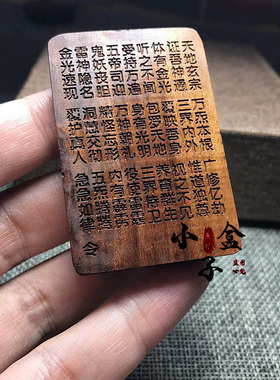 天地玄宗 万炁本根 广修亿劫
证吾神通 三界内外 惟道独尊
体有金光 覆映吾身 视之不见
听之不闻 包罗天地 养育群生
受持万遍 身有光明 三界侍卫
五帝司迎 万神朝礼 役使雷霆
鬼妖丧胆 精怪忘形 内有霹雳
雷神隐名 洞慧交彻 五炁腾腾
金光速现 覆护真人 急急如律令
小盒子